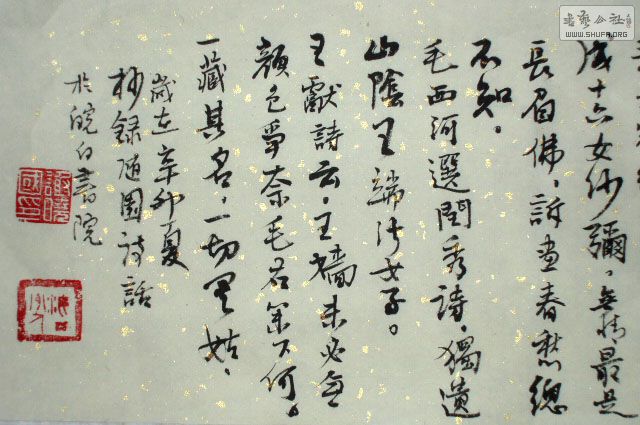 書藝公社
WWW.SHUFA.ORG
成十六女沙彌。無情最是
長眉佛,訴盡春愁總
不知。
毛西河選閨秀詩,獨遺
山陰王端淑女子。
王獻詩云,王嬙未必無
顏色爭奈毛君筆下何。
一藏其名,一切姑、
歲在辛卯夏
抄録随園詩話
於皖白書院